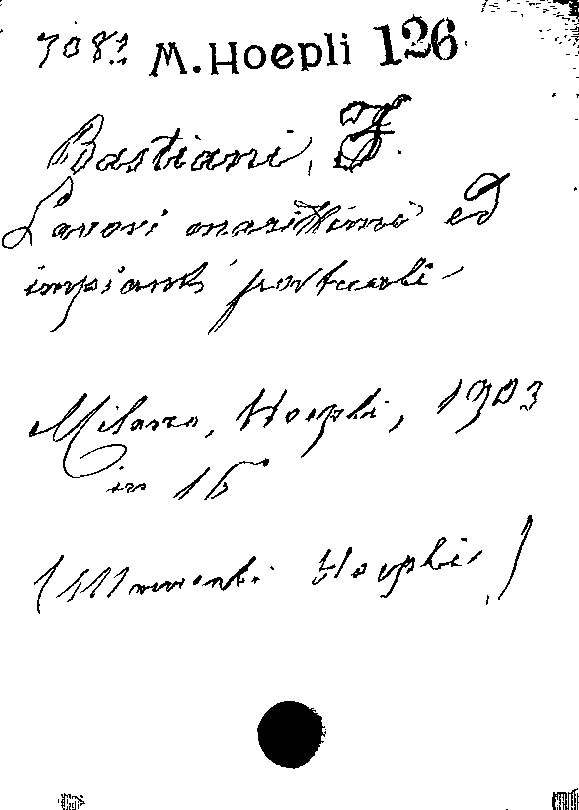 M. Hoepli 126
Bastiani, F.
Lavori marittimi ed
impianti portuali
Milano, Hoepli, 1903
in 16°
(Manuali Hoepli)